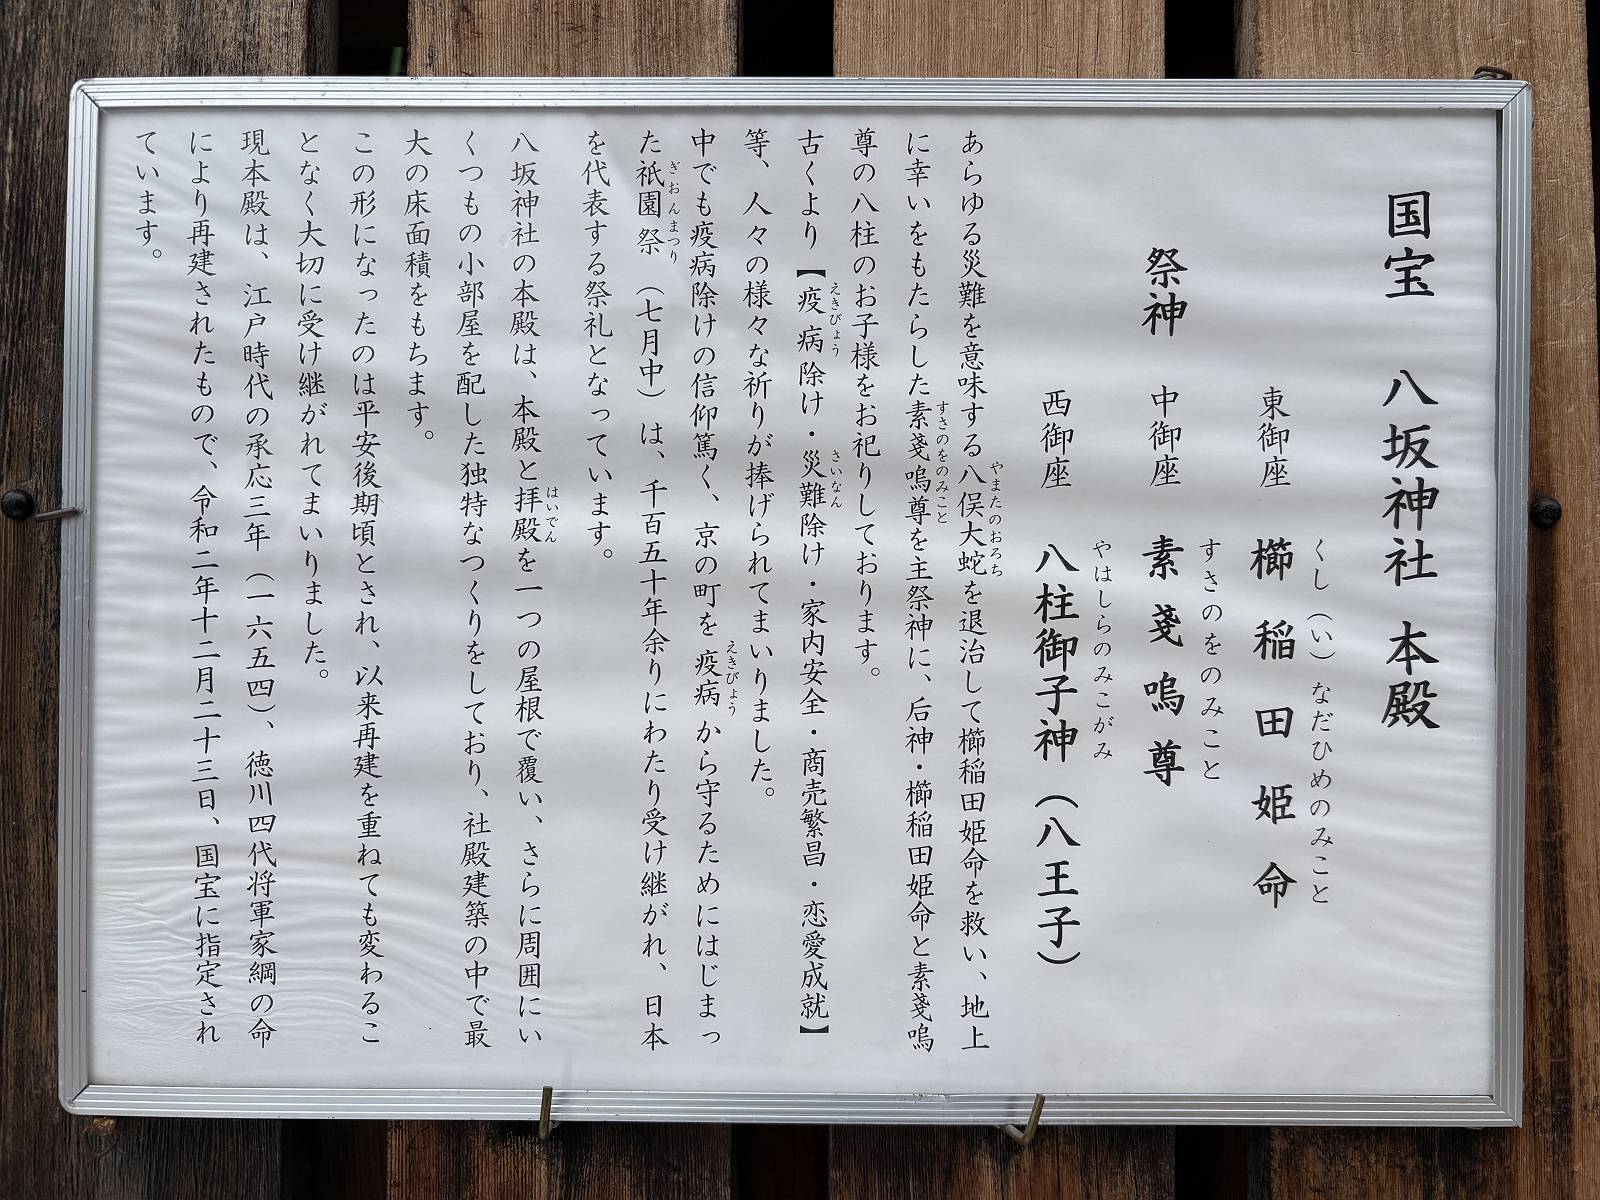 国宝 八坂神社 本殿
くし（い）なだひめのみこと
東御座 櫛稲田姫命
すさのをのみこと
祭神 中御座 素戔嗚尊
やはしらのみこがみ
西御座 八柱御子神（八王子）
やまたのおろち
あらゆる災難を意味する八俣大蛇を退治して櫛稲田姫命を救い、地上
すさのをのみこと
に幸いをもたらした素戔嗚尊を主祭神に、后神・櫛稲田姫命と素戔嗚
尊の八柱のお子様をお祀りしております。
えきびょう さいなん
古くより【疫病除け・災難除け・家内安全・商売繁昌・恋愛成就】
等、人々の様々な祈りが捧げられてまいりました。
えきびょう
中でも疫病除けの信仰篤く、京の町を疫病から守るためにはじまっ
ぎおんまつり
た祇園祭（七月中）は、千百五十年余りにわたり受け継がれ、日本
を代表する祭礼となっています。
はいでん
八坂神社の本殿は、本殿と拝殿を一つの屋根で覆い、さらに周囲にい
くつもの小部屋を配した独特なつくりをしており、社殿建築の中で最
大の床面積をもちます。
この形になったのは平安後期頃とされ、以来再建を重ねても変わるこ
となく大切に受け継がれてまいりました。
現本殿は、江戸時代の承応三年（一六五四）、徳川四代将軍家綱の命
により再建されたもので、令和二年十二月二十三日、国宝に指定され
ています。